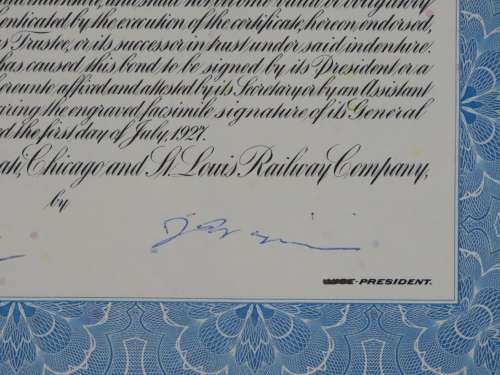 and shall not become valid or obligatory
enticated by the execution of the certificate, hereon endorsed,
s Trustee, or its successor in trust under said indenture.
has caused this bond to be signed by its President or a
hereunto affixed and attested by its Secretary or by an Assistant
aring the engraved facsimile signature of its General
d the first day of July, 1927.
ah, Chicago and St. Louis Railway Company,
by
-PRESIDENT.